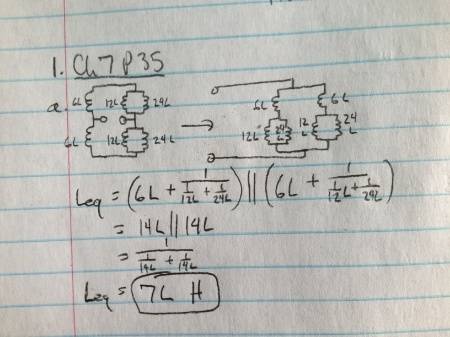 1. Ch 7 P35
a.
6L 12L 24L
6L 12L 24L
6L 6L
12L 24L 12L 24L
Leq = (6L + 1/(1/12L + 1/24L)) || (6L + 1/(1/12L + 1/24L))
= 14L || 14L
= 1/(1/14L + 1/14L)
Leq = 7L H